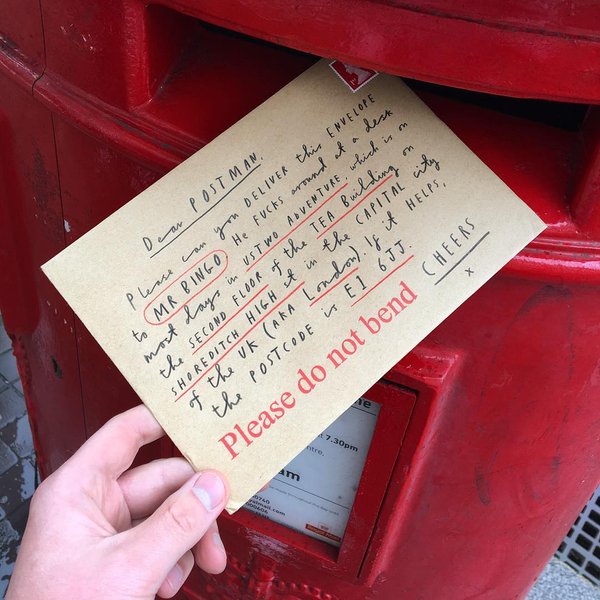 Dear POSTMAN.
Please can you DELIVER this ENVELOPE
to MR BINGO He FUCKS around at a desk
most days in USTWO ADVENTURE, which is on
the SECOND FLOOR of the TEA Building on
SHOREDITCH HIGH st in the CAPITAL city
of the UK (AKA London). If it HELPS,
the POSTCODE is E1 6JJ.
CHEERS
x
Please do not bend
7.30pm
am